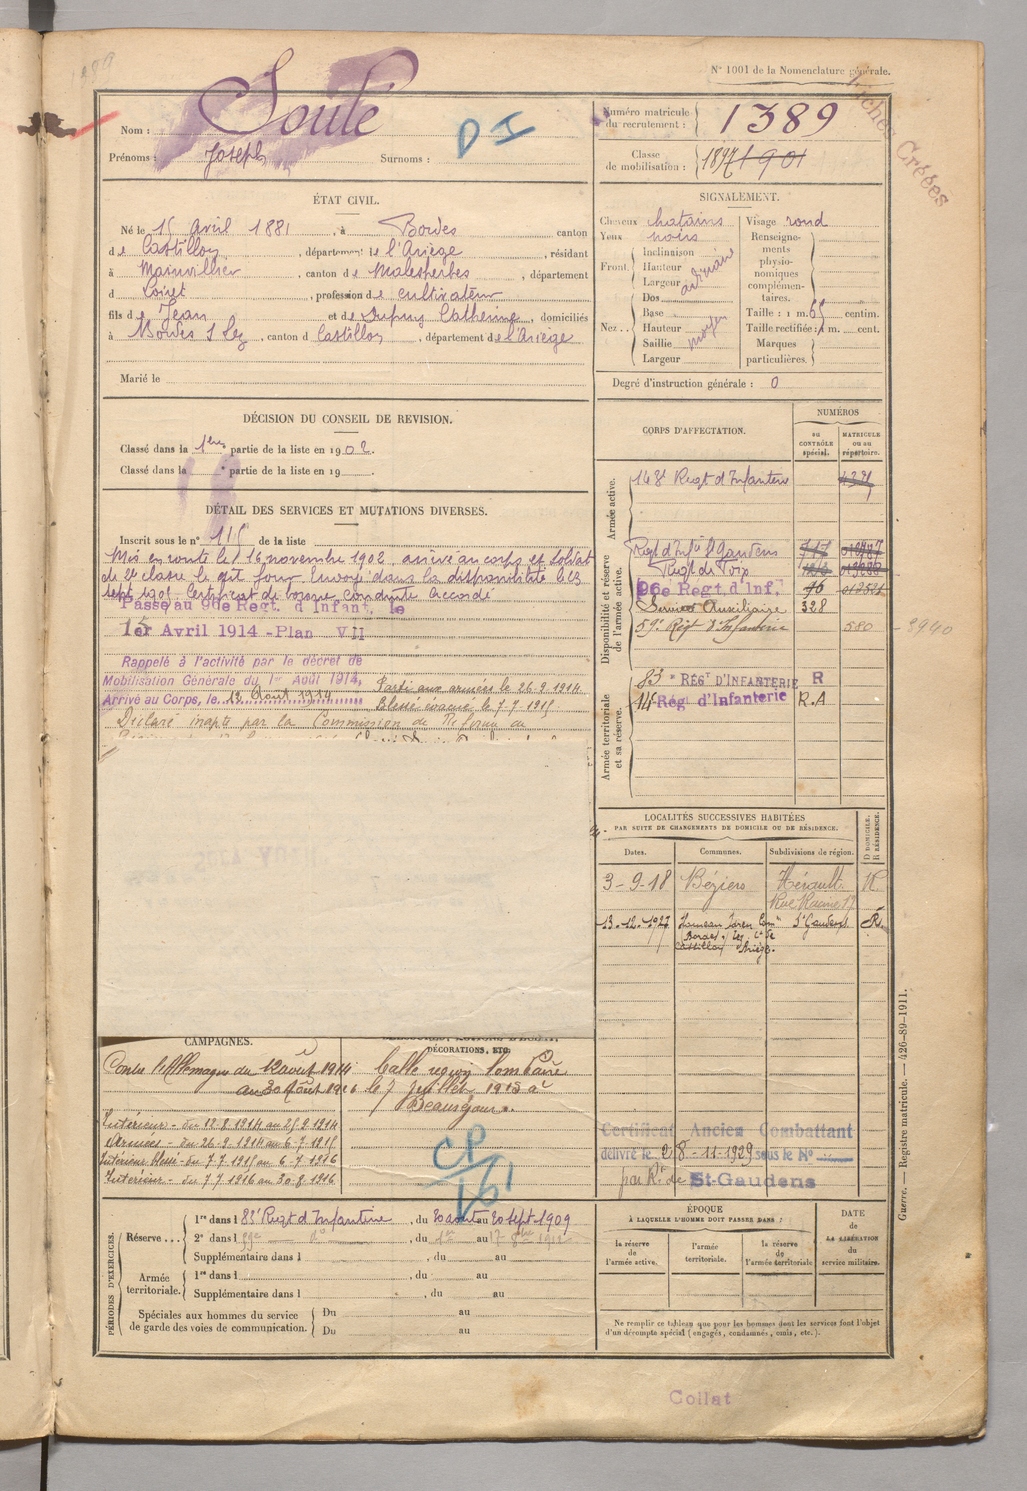 N° 1001 de la Nomenclature générale.
Fiches Créées
Nom : Soulé
Prénoms : Joseph Surnoms :
D I
Numéro matricule du recrutement : 1389
Classe de mobilisation : 1897 1901
ÉTAT CIVIL.
Né le 15 Avril 1881, à Bordes canton
de Castillon, département de l'Ariège, résidant
à Mainvillier, canton de Malesherbes, département
d Loiret, profession de cultivateur
fils de Jean et de Dupuy Catherine, domiciliés
à Bordes s/ Lez, canton d Castillon, département de l'Ariège
Marié le
SIGNALEMENT.
Cheveux chatains
Yeux noirs
Front. Inclinaison
Hauteur
Largeur
ordinaire
Nez.. Dos
Base
Hauteur
Saillie
Largeur
moyen
Visage rond
Renseignements physionomiques complémentaires.
Taille : 1 m. 65 centim.
Taille rectifiée : 1 m. cent.
Marques particulières.
Degré d'instruction générale : 0
DÉCISION DU CONSEIL DE REVISION.
Classé dans la 1ère partie de la liste en 1902.
Classé dans la partie de la liste en 19
DÉTAIL DES SERVICES ET MUTATIONS DIVERSES.
Inscrit sous le n° 115 de la liste
Mis en route le 16 novembre 1902. arrivé au corps et soldat
de 2e classe le dit jour. Envoyé dans la disponibilité le 23
sept 1905. Certificat de bonne conduite Accordé
Passé au 96e Regt. d'Infant. le
1er Avril 1914 - Plan VII
Rappelé à l'activité par le décret de
Mobilisation Générale du 1er Août 1914,
Arrivé au Corps, le 12 Août 1914
Parti aux armées le 26.9.1914
Blessé évacué le 7.7.1915
Déclaré inapte par la Commission de Réforme de
CORPS D'AFFECTATION.
NUMÉROS
au CONTRÔLE spécial.
MATRICULE ou au répertoire.
Armée active.
143e Regt d'Infanterie
Disponibilité et réserve de l'armée active.
Regt d'Infie St Gaudens
Regt de Foix
96e Regt. d'Inf.
Service Auxiliaire 328
59e Régt d'Infanterie 580 - 3940
Armée territoriale et sa réserve.
83e RÉGt D'INFANTERIE R
114 Rég d'Infanterie R.A
LOCALITÉS SUCCESSIVES HABITÉES
PAR SUITE DE CHANGEMENTS DE DOMICILE OU DE RÉSIDENCE.
Dates. Communes. Subdivisions de région. D DOMICILE. R RÉSIDENCE.
3-9-18 Béziers Hérault R.
13.12.1927 St Gaudens R.
Castillon Ariège.
CAMPAGNES.
Contre l'Allemagne du 12 août 1914
au 30 Août 1916
Intérieur - du 12.8.1914 au 25.9.1914
Armées - du 26.9.1914 au 6.7.1915
Intérieur blessé - du 7.7.1915 au 6.7.1916
Intérieur - du 7.7.1916 au 30.8.1916
DÉCORATIONS, ETC.
balle région lombaire
le 7 juillet 1915 à
Beauséjour.
CP
161
Certificat Ancien Combattant
délivré le 28-11-1929 sous le N°
par R. de St-Gaudens
PÉRIODES D'EXERCICES.
Réserve... 1re dans l 83e Regt d'Infanterie, du 20 aout au 20 sept 1909
2e dans l 59e do, du 1er au 17 8bre 1912
Supplémentaire dans l , du au
Armée territoriale. 1re dans l , du au
Supplémentaire dans l , du au
Spéciales aux hommes du service de garde des voies de communication. Du au
Du au
ÉPOQUE
À LAQUELLE L'HOMME DOIT PASSER DANS :
la réserve de l'armée active.
l'armée territoriale.
la réserve de l'armée territoriale
DATE de LA LIBÉRATION du service militaire.
Ne remplir ce tableau que pour les hommes dont les services font l'objet
d'un décompte spécial (engagés, condamnés, omis, etc.).
Guerre. — Registre matricule. — 426-89-1911.
Collat